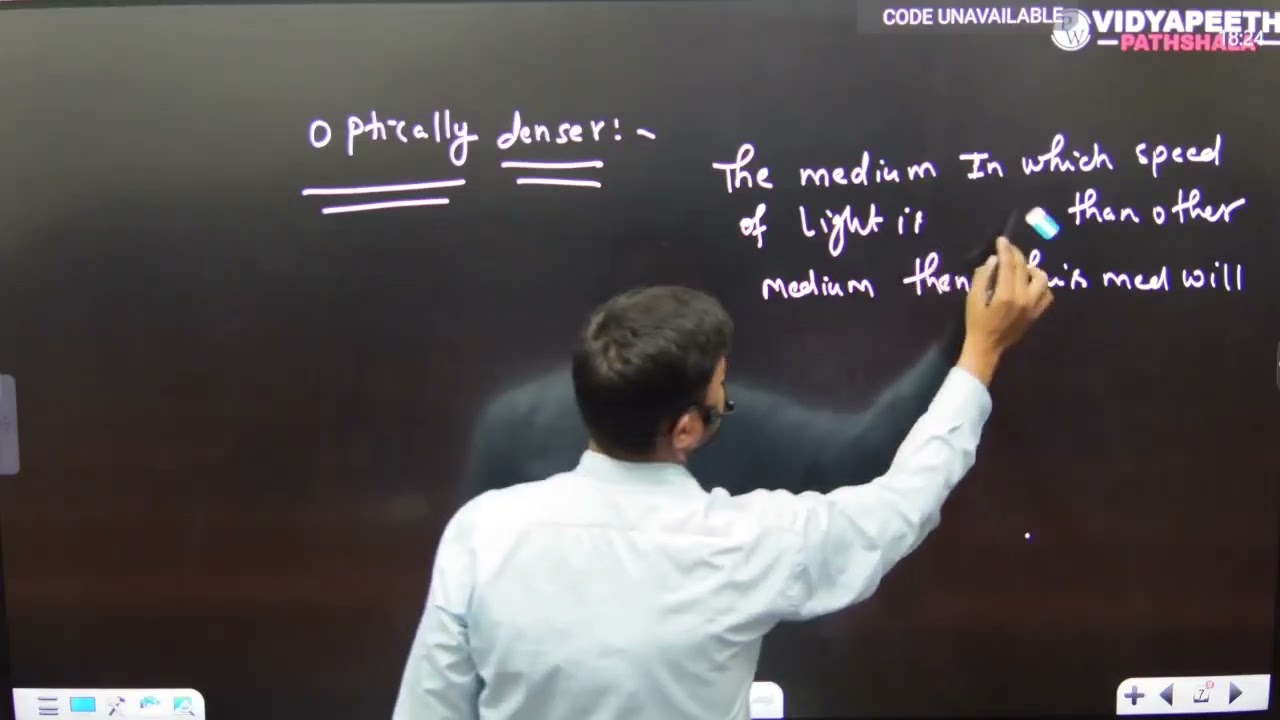 CODE UNAVAILABLE
VIDYAPEETH
PATHSHALA
18:24
PW
Optically denser:-
The medium In which speed
of light is than other
medium then med will
7